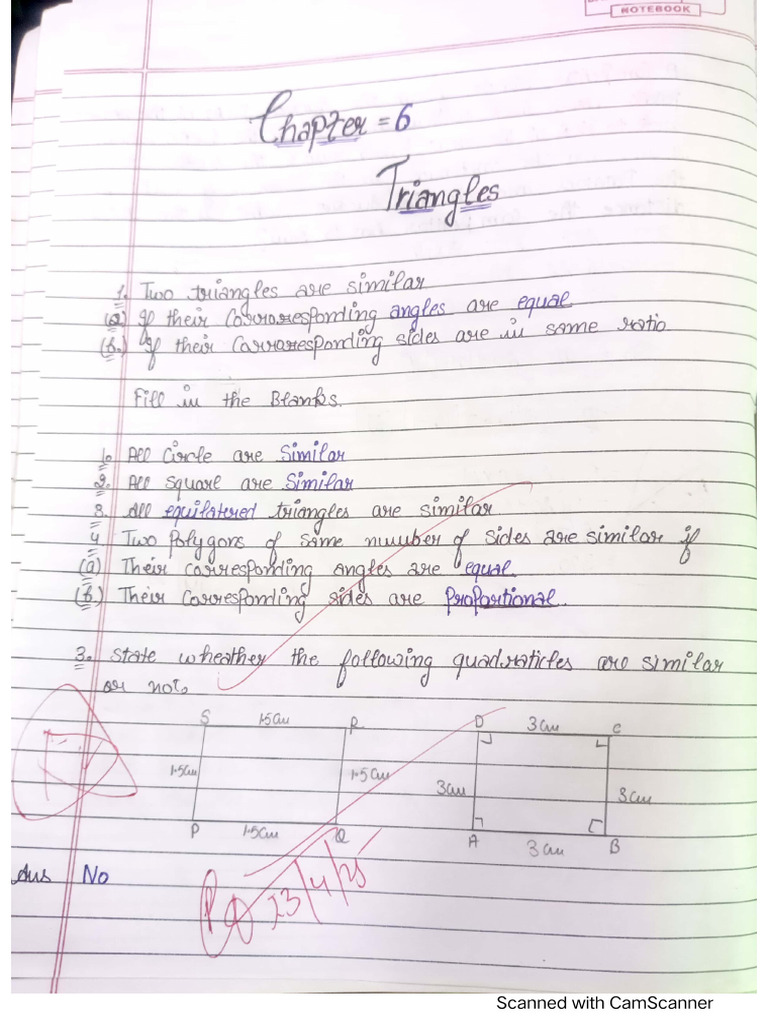 NOTEBOOK
Chapter = 6
Triangles
1. Two triangles are similar
(a) If their Corraresponding angles are equal
(b.) If their Carraresponding sides are in same ratio
Fill in the Blanks.
1. All Circle are Similar
2. All square are Similar
3. All equilatered triangles are similar
4 Two Polygons of same number of sides are similar if
(a) Their corresponding angles are equal
(b.) Their Corresponding sides are Proportional.
3. State wheather the following quadraticles are similar
or not.
S 1.5cm R D 3 cm C
1.5cm 1.5cm 3cm 3cm
P 1.5cm Q A 3 cm B
Ans No
23/4/25
Scanned with CamScanner